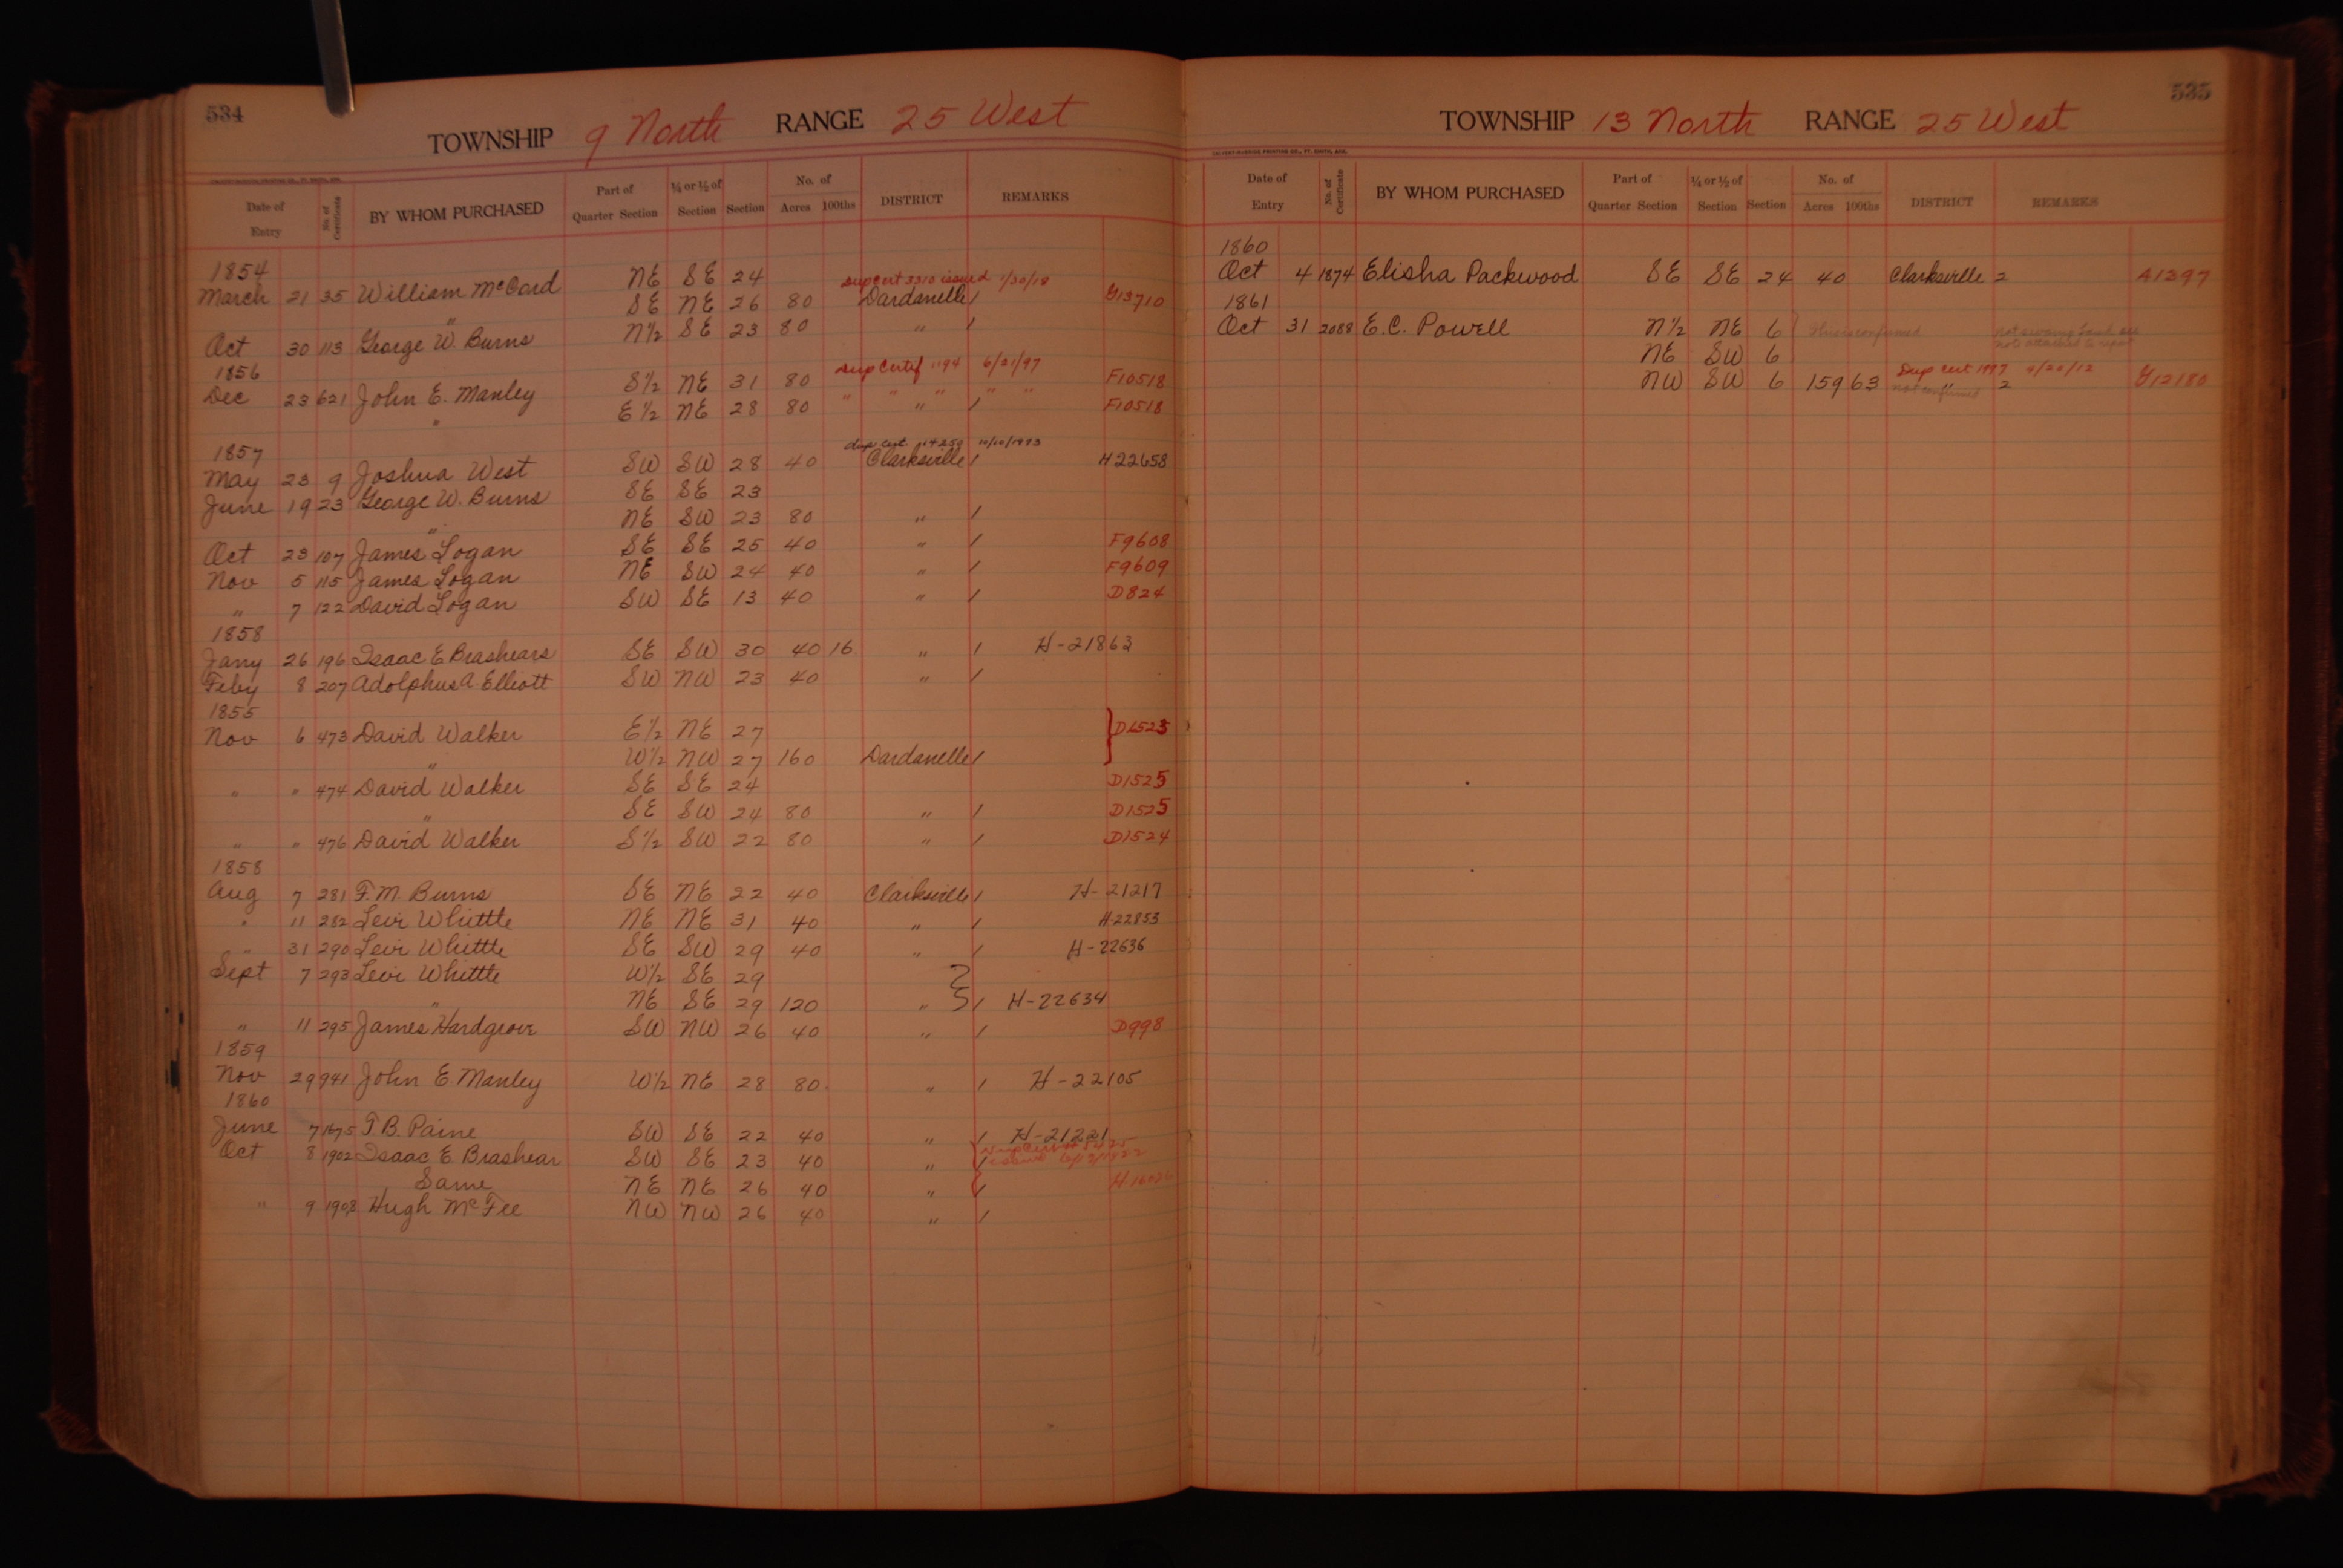 534
TOWNSHIP 9 North RANGE 25 West
Date of Entry No. of Certificate BY WHOM PURCHASED Part of Quarter Section ¼ or ½ of Section Section No. of Acres 100ths DISTRICT REMARKS
1854
Dup Cert 3310 issued 1/30/18
March 21 35 William McCord NE SE 24
" SE NE 26 80 Dardanelle 1 G13710
Oct 30 113 George W. Burns N½ SE 23 80 " 1
1856
Dup Certif 1194 6/21/97
Dec 23 621 John E. Manley S½ NE 31 80 " " " " " F10518
" E½ NE 28 80 " 1 F10518
1857
dup cert. 14259 11/10/1993
May 23 9 Joshua West SW SW 28 40 Clarksville 1 H22658
June 19 23 George W. Burns SE SE 23
" NE SW 23 80 " 1
Oct 23 107 James Logan SE SE 25 40 " 1 F9608
Nov 5 115 James Logan NE SW 24 40 " 1 F9609
" 7 122 David Logan SW SE 13 40 " 1 D824
1858
Jany 26 196 Isaac E Brashears SE SW 30 40 16 " 1 H-21863
Feby 8 207 Adolphus A Elliott SW NW 23 40 " 1
1855
Nov 6 473 David Walker E½ NE 27 D1523
" W½ NW 27 160 Dardanelle 1
" " 474 David Walker SE SE 24 D1525
" SE SW 24 80 " 1 D1525
" " 476 David Walker S½ SW 22 80 " 1 D1524
1858
Aug 7 281 F. M. Burns SE NE 22 40 Clarksville 1 H-21217
" 11 282 Levi Whittle NE NE 31 40 " 1 H-22853
" 31 290 Levi Whittle SE SW 29 40 " 1 H-22636
Sept 7 293 Levi Whittle W½ SE 29
" NE SE 29 120 " 1 H-22634
" 11 295 James Hardgrove SW NW 26 40 " 1 D998
1859
Nov 29 941 John E. Manley W½ NE 28 80 " 1 H-22105
1860
June 7 1675 T. B. Paine SW SE 22 40 " 1 H-21221
Oct 8 1902 Isaac E Brashear SW SE 23 40 " 1 issued
Same NE NE 26 40 " 1
" 9 1908 Hugh McFee NW NW 26 40 " 1
535
TOWNSHIP 13 North RANGE 25 West
CALVERT-McBRIDE PRINTING CO., FT. SMITH, ARK.
Date of Entry No. of Certificate BY WHOM PURCHASED Part of Quarter Section ¼ or ½ of Section Section No. of Acres 100ths DISTRICT REMARKS
1860
Oct 4 1874 Elisha Packwood SE SE 24 40 Clarksville 2 A1297
1861
Oct 31 2088 E. C. Powell N½ NE 6 This is confirmed not swamp land see
NE SW 6 note attached to report
Dup cert 1987 4/20/12
NW SW 6 159 63 " not confirmed 2 G12180